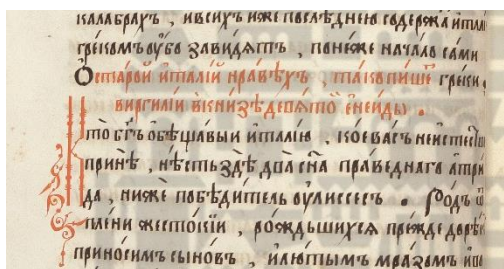 калабрахъ , ивсихъ иже послѣднею содержа итал
грекомъ оубо завидятъ , понеже начало сами
Ѻ старой италіи нравѣхъ , тако пише греки .
виргиліи вкнизѣ девятой енеиды .
Кто бг҃ъ обѣщавыи италію , кое васъ неистес
прине , нѣсть здѣ два сн҃а праведнаго атри
да , ниже побѣдитель оулиссесъ . Родъ
плени жестокіи , рождьшихся прежде
приносим сыновъ , илютым мразом